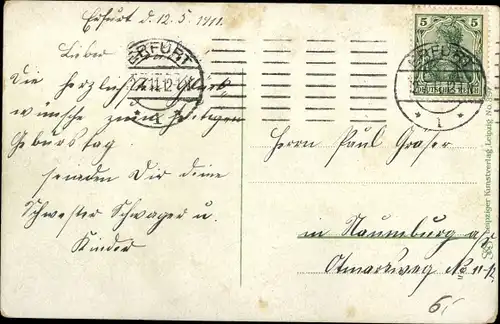 Erfurt d. 12. 5. 1911.
Lieber
Die herzlichsten Glück
wünsche zum heutigen
Geburstag
senden Dir deine
Schwester Schwager u.
Kinder
ERFURT
1
5
DEUTSCHES REICH
ERFURT
1
Herrn Paul Graser
in Naumburg a/S.
Otmarsweg No
Leipziger Kunstverlag Leipzig No.